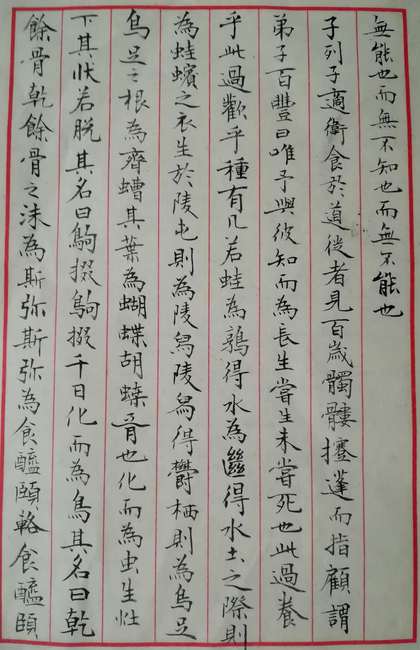 無能也而無不知也而無不能也
子列子適衛食於道從者見百歲髑髏攓蓬而指顧謂
弟子百豐曰唯予與彼知而為長生嘗生未嘗死也此過養
乎此過歡乎種有几若蛙為鶉得水為㡭得水土之際則
為蛙蠙之衣生於陵屯則為陵舄陵舄得鬱栖則為烏足
烏足之根為齊螬其葉為蝴蝶胡蝶胥也化而為虫生灶
下其狀若脫其名曰鴝掇鴝掇千日化而為鳥其名曰乾
餘骨乾餘骨之沫為斯弥斯弥為食醯頤輅食醯頤